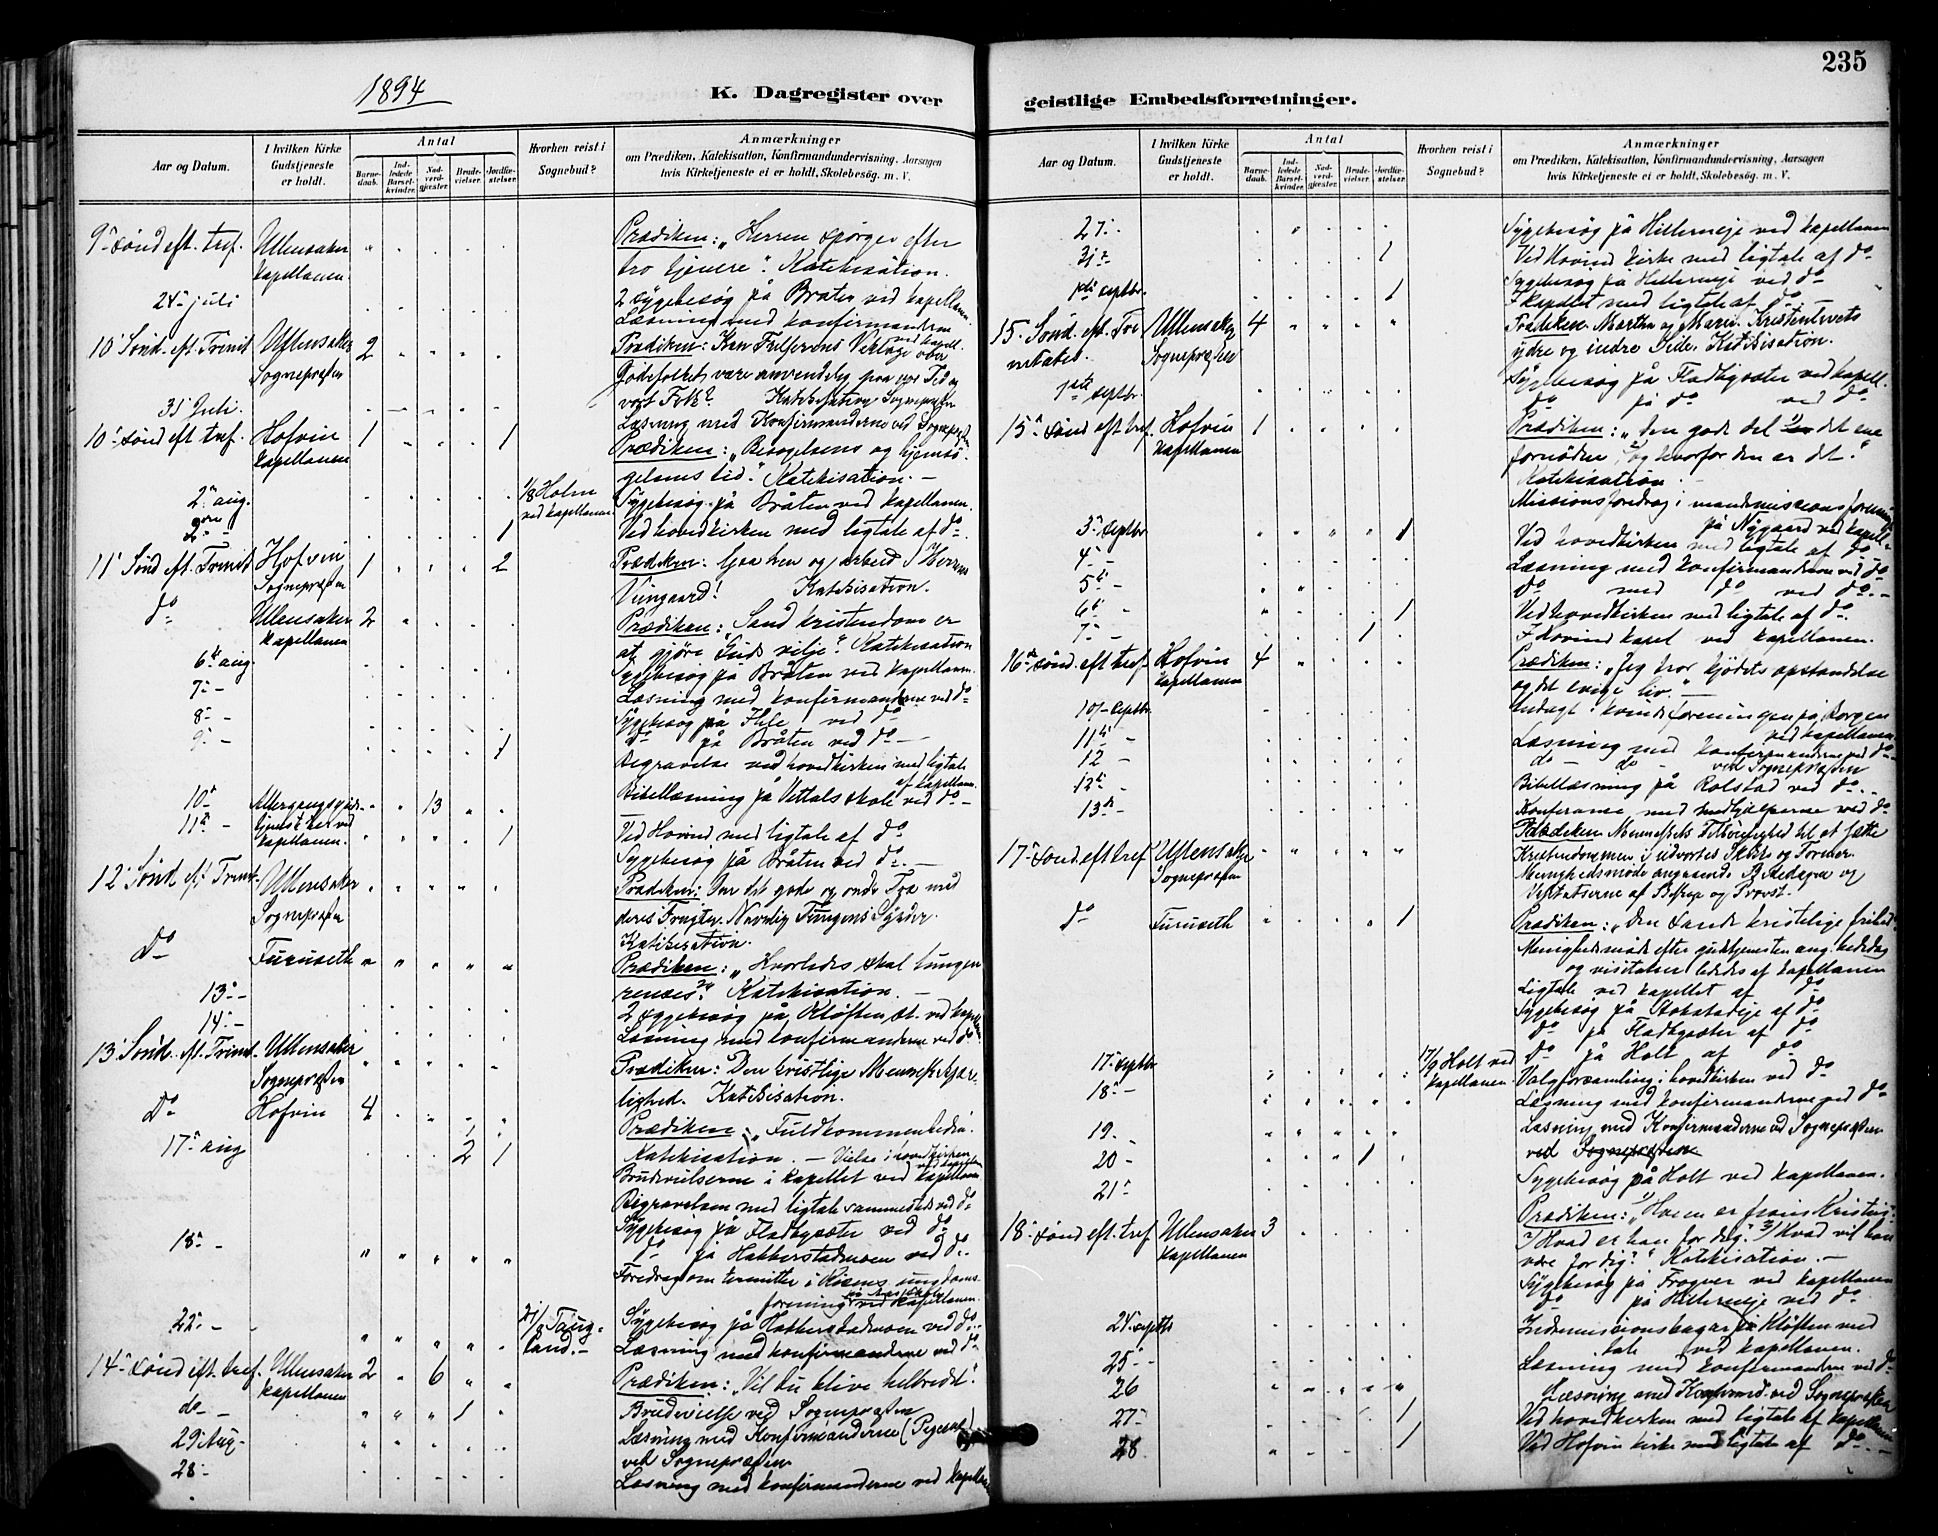 235
1894
K. Dagregister over geistlige Embedsforretninger.
Aar og Datum.
I hvilken Kirke Gudstjeneste er holdt.
Antal
Barnedaab.
Indledede Barselkvinder.
Nadverdgjester.
Brudevielser.
Jordfæstelser.
Hvorhen reist i Sognebud?
Anmærkninger
om Prædiken, Katekisation, Konfirmandundervisning, Aarsagen
hvis Kirketjeneste ei er holdt, Skolebesøg. m. V.
9 sønd eft. tref. Ullensaker Prædiken: "Herren spörger efter
kapellanen. tro tjenere". Katekisation.
24 juli 2 sygebesøg på Bråten ved kapellanen.
Læsning med konfirmanderne ved kapell.
10 Sönd. eft. Trinit Ullensaker 2 Prædiken:
Sognepræsten
vort Folk? Katekisation Sognepræsten
31 Juli. Læsning med Konfirmanderne ved Sognepræsten
10 sönd eft tref. Hofvin 1 1 Prædiken: "Besøgelsens og hjemsö-
kapellanen gelsens tid." Katekisation. –
2 aug. 1/8 Holm Sygebesøg på Bråten ved kapellanen.
ved kapellanen
1 Ved hovedkirken med ligtale af do
11 Sönd eft. Trinit Hofvin 1 2 Prædiken: Gaa hen og arbeid i Herrens
Sognepræsten Viingaard! Katekisation.
do Ullensaker 2 Prædiken: "Sand kristendom er
kapellanen at gjöre Guds vilje". Katekisation
6 aug. Sygebesøg på Bråten ved kapellanen.
7 – Læsning med konfirmanderne ved do
8 – Sygebesøg på Ihle ved do
9 – 1 do på Bråten ved do –
Begravelse ved hovedkirken med ligtale
af kapellanen.
10 Altergangsgud- 13 Bibellæsning på Vettals skole ved do –
11 – tjeneste ved 1 Ved Hovind med ligtale af do
kapellanen. Sygebesøg på Bråten ved do. –
12 Sönd. eft Trinit. Ullensaker Prædiken: Om det gode og onde Træ med
Sognepræsten deres Frugter. Navnlig Tungens Synder.
Katekisation.
Do Furuseth Prædiken: "Hvorledes skal tungen
renses?" Katekisation. –
13 – 2 sygebesøg på Kløften st. ved kapellan
14 – Læsning med konfirmanderne ved do
13 Sönd. eft. Trinit. Ullensaker Prædiken: Den kristlige Menneskekjær-
Sognepræsten lighed. Katekisation.
Do Hofvin 4 Prædiken: "Fuldkommenhed".
17 aug 2 1 Katekisation. – Vielse i hovedkirken
ved kapellan
Brudevielserne i kapellet ved kapellanen
Begravelsen med ligtale sammesteds ved do
Sygebesøg på Fladbysæter ved do
18 – do på Hakkerstadmoen ved do.
Foredrag om termitter i Risens ungdoms-
forening ved kapellanen.
22 – 21/8 Taug- Sygebesøg på Hakkerstadmoen ved do
land. – Læsning med konfirmanderne ved do
14 sönd eft. tref. Ullensaker 2 6 Prædiken: "Vil du blive helbredet".
kapellanen
do – 1 Brudevielse ved Sognepræsten
29 Aug. Læsning med Konfirmanderne
ved Sognepræsten
28 – Læsning med konfirmanderne ved kapellan
27 – Sygebesøg på Hillerneje ved kapellanen
31 1 Ved Hovind kirke med ligtale af do
Sygebesøg på Hillerneje ved do
1ste septbr. 1 I kapellet med ligtale af do –
15 Sönd. eft. Tri- Ullensaker 4 Prædiken. Martha og Maria. Kristenlivets
nitatis. Sognepræsten ydre og indre Side. Katekisation.
1ste septbr. Sygebesøg på Fladbysæter ved kapell.
do på do ved do
15 sönd eft tref. Hofvin 1 Prædiken: "Den gode del det ene
kapellanen fornødne, og hvorfor den er det."
Katekisation. –
Missionsforedrag i mandsmissionsforening
på Nygaard ved kapell.
3 septbr. 1 Ved hovedkirken med ligtale af do –
4 – Læsning med konfirmanderne ved do
5 – do med do ved do. –
6 – 1 Ved hovedkirken med ligtale af do.
7 – 1 I Hovind kapel ved kapellanen.
16 sönd. eft tref. Hofvin 4 Prædiken: "Jeg tror kjödets opstandelse
kapellanen og det evige liv." –
10 – septbr. Andagt i kvindeforeningen på Borgen
ved kapellanen
11 – Læsning med konfirmanderne ved do
12 – do – do – ved Sognepræsten
12 – Bibellæsning på Rolstad ved do. –
13 – Konferanse med medhjelperne ved do
17 sönd. eft tref. Ullensaker Prædiken. Menneskets Tilböielighed til at sætte
Sognepræsten Kristendommen i udvortes Skikke og Former.
Menighedsmöde angaaende Bededagen og
Visitatserne af Biskop og Provst.
do Furuseth 1 Prædiken: "Den sande kristelige frihed".
Menighedsmöde efter gudstjenesten ang. bededag
og visitatser lededes af kapellanen
Ligtale ved kapellet af do
Sygebesøg på Stokstadeje af do
do på Fladbysæter af do
17/9 Holt ved do på Holt af do
17 – septbr. kapellanen. Valgforsamling i hovedkirken ved do
18 – Læsning med konfirmanderne ved do
19. Læsning med Konfirmanderne ved Sognepræsten
20 – 1 ved Sognepræsten
21 Sygebesøg på Holt ved kapellanen.
18 sönd eft. tref Ullensaker 3 Prædiken: "Hvem er Kristus?
kapellanen 2) Hvad er han for dig? 3) Hvad vil han
være for dig?" Katekisation. –
Sygebesøg på Frogner ved kapellanen
do på Hillerneje ved do
24 – septbr Indremissionsbasar på Kløften med
tale ved kapellanen.
25 – Læsning med konfirmanderne ved do
26 Læsning med Konfirmd. ved Sognepræsten
27 – 1 Ved hovedkirken med ligtale af kapellanen
28 1 Ved Hofvin kirke med ligtale af do. –